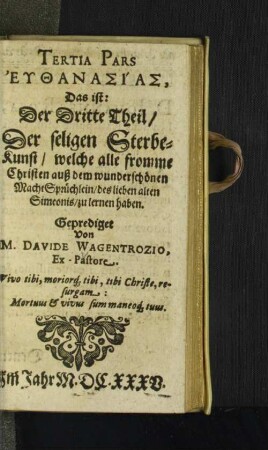 TERTIA PARS
ἘΥΘΑΝΑΣΊΑΣ,
Das ist:
Der Dritte Theil/
Der seligen Sterbe-
Kunst/ welche alle fromme
Christen auß dem wunderschönen
MachtSprüchlein/des lieben alten
Simeonis/zu lernen haben.
Geprediget
Von
M. DAVIDE WAGENTROZIO,
Ex-Pastore.
Vivo tibi, moriorq, tibi, tibi Christe, re-
surgam:
Mortuus & vivus sum maneoq, tuus.
Im Jahr M.DC.XXXV.